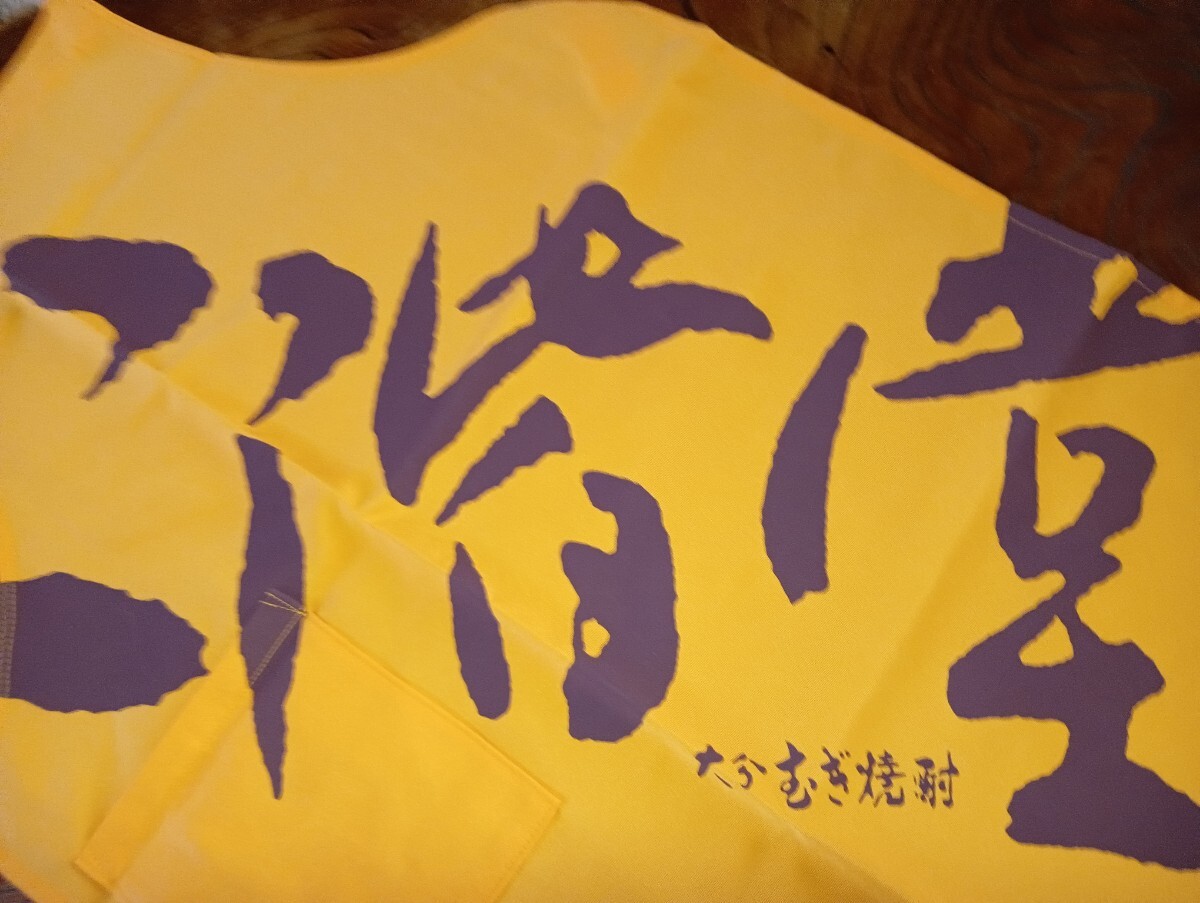 二階堂
大分むぎ焼酎